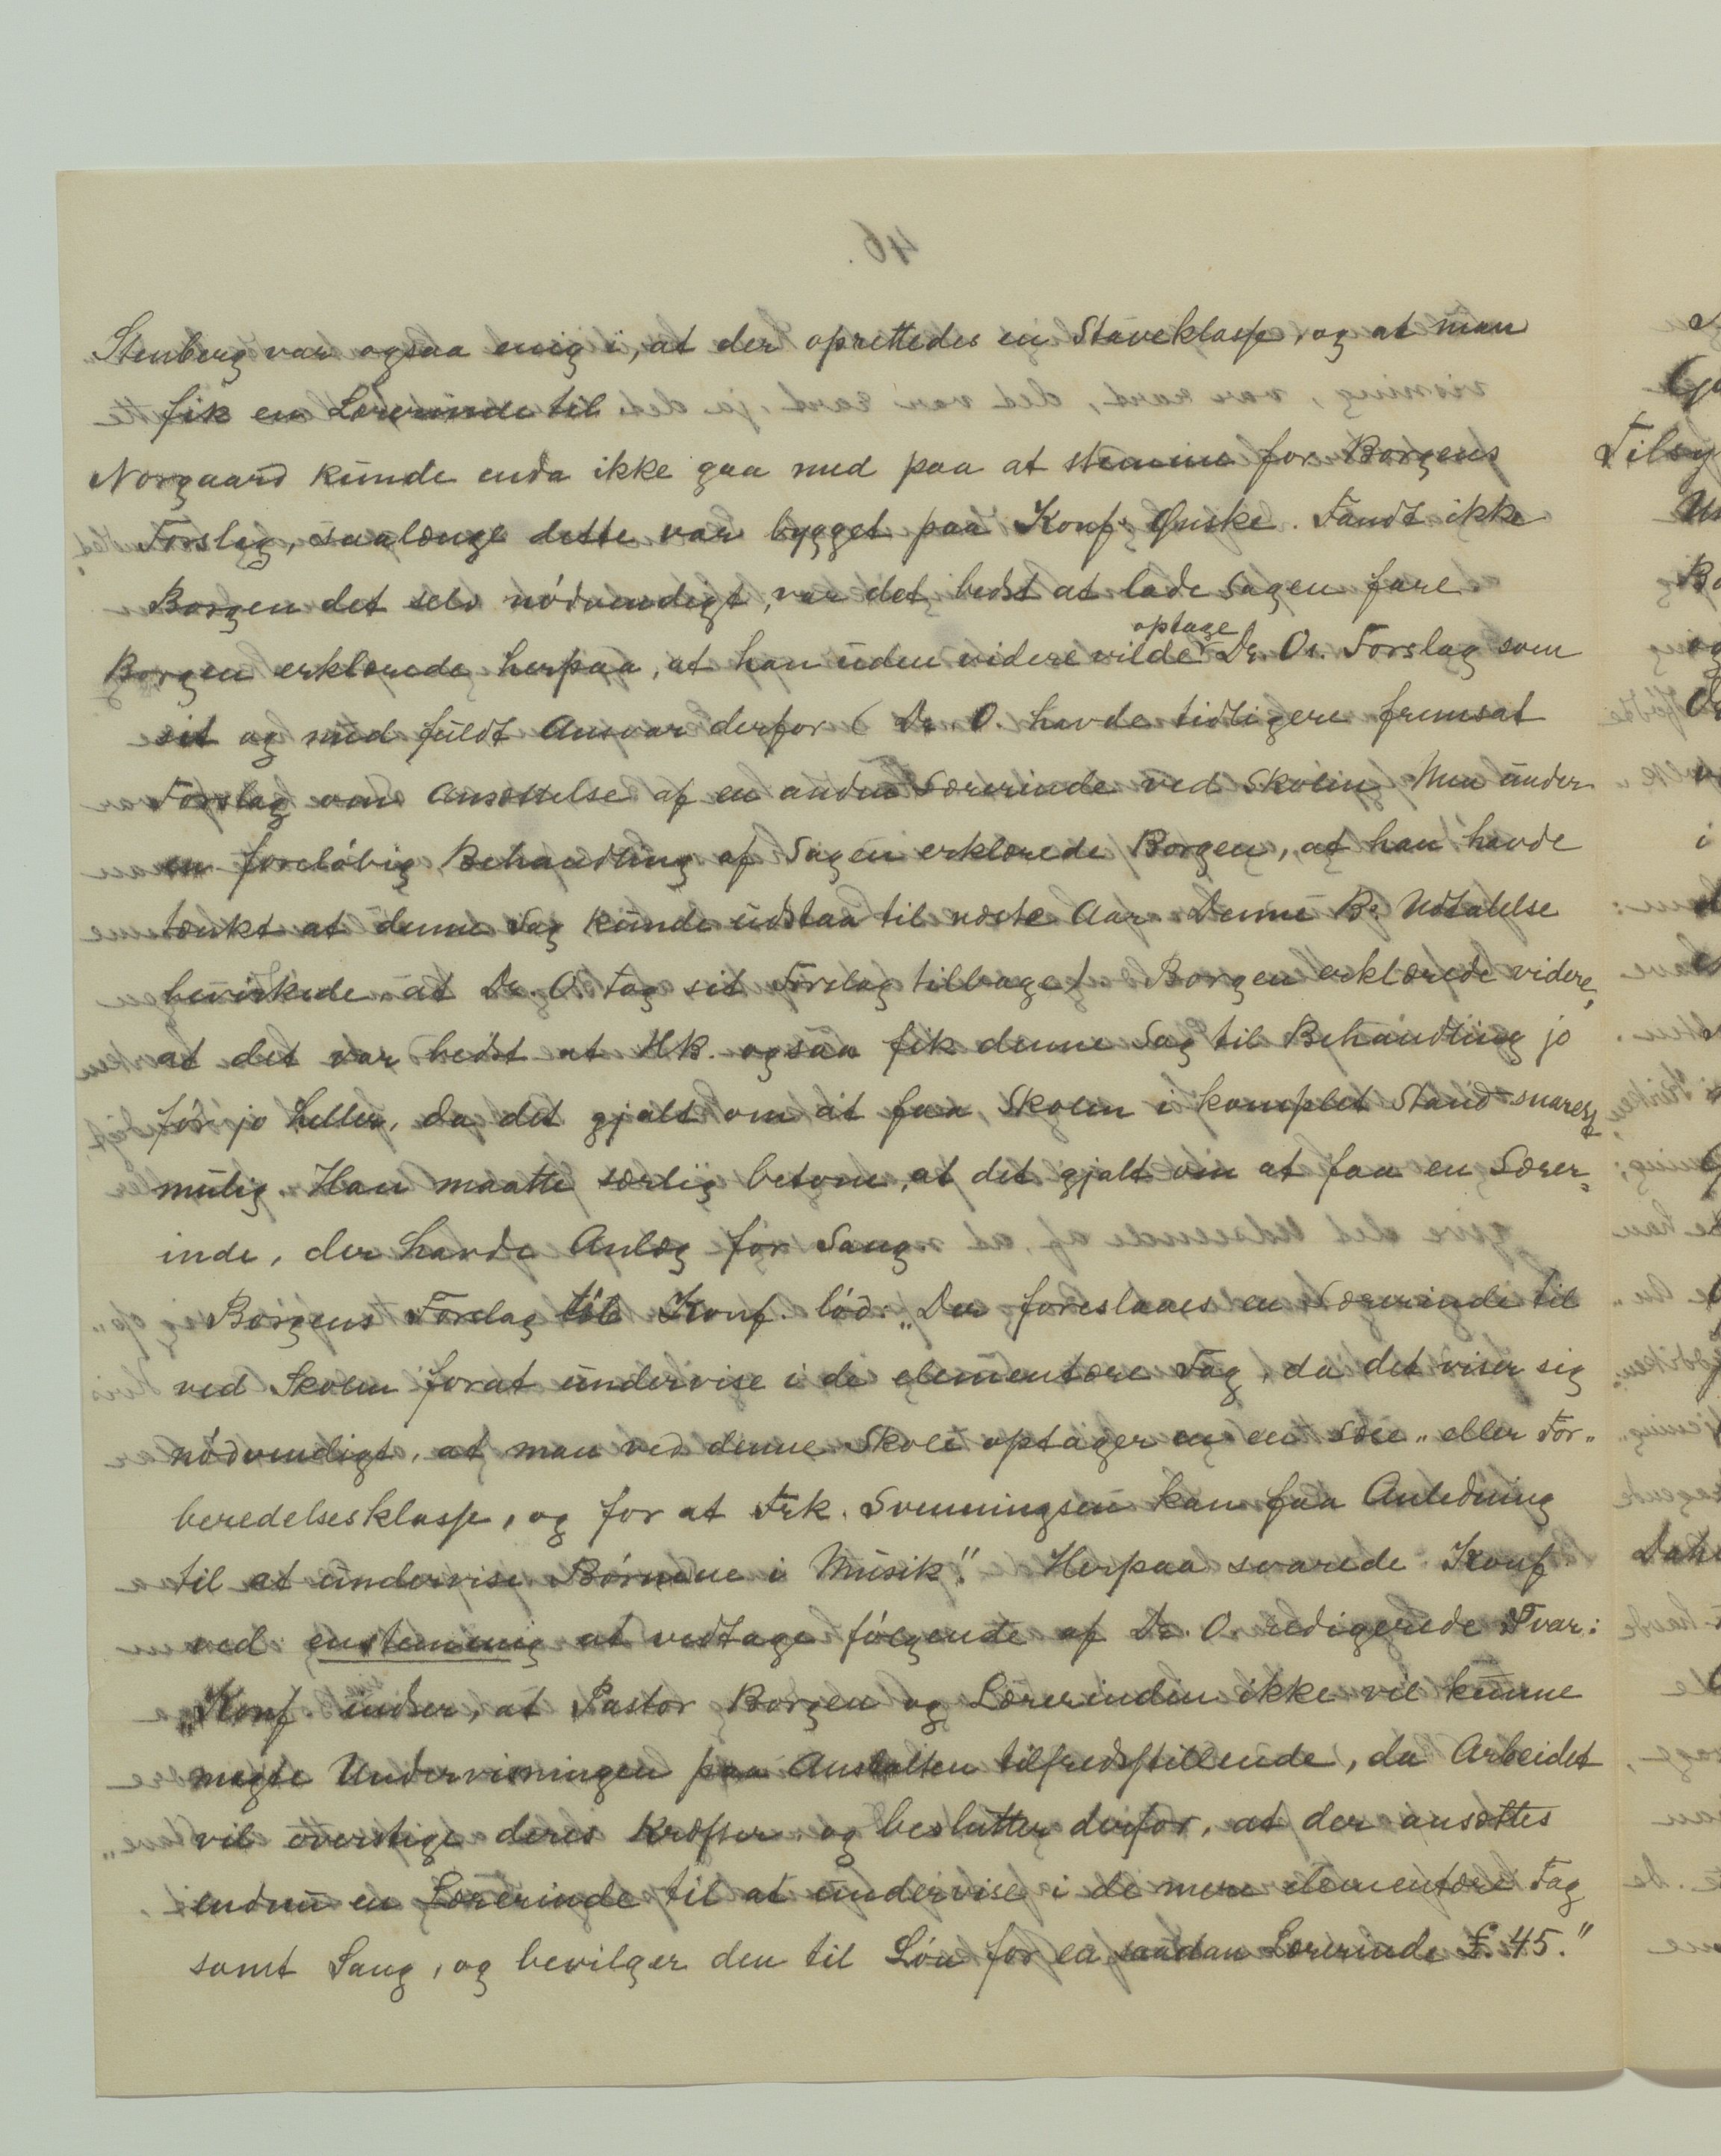 Stenberg var ogsaa enig i, at der oprettedes en Staveklasse, og at man
fik en Lærerinde til
Norgaard kunde enda ikke gaa med paa at stemme for Borgens
Forslag, saalænge dette var bygget paa Konf. Ønske. Fandt ikke
Borgen det selv nödvendigt, var det bedst at lade Sagen fare.
Borgen erklærede herpaa, at han uden videre vilde optage Dr. Os. Forslag som
sit og med fuldt Ansvar derfor (Dr. O. havde tidligere fremsat
Forslag om Ansættelse af en anden Lærerinde ved Skolen. Men under
en foreløbig Behandling af Sagen erklærede Borgen, at han havde
tænkt at denne Sag kunde udstaa til næste Aar. Denne Bs Udtalelse
bevirkede at Dr. O. tog sit Forslag tilbage) Borgen erklærede videre,
at det var bedst at HK. ogsaa fik denne Sag til Behandling jo
för jo heller, da det gjalt om at faa Skolen i komplet Stand snarest
mulig. Han maatte særlig betone, at det gjalt om at faa en Lærer-
inde, der havde Anlæg for Sang
Borgens Forslag til Konf. löd: „Der foreslaaes en Lærerinde til
ved Skolen forat undervise i de elementære Fag, da det viser sig
nödvendigt, at man ved denne Skole optager en Læse- eller For-
beredelsesklasse, og for at Frk. Svenningsen kan faa Anledning
til at undervise Börnene i Musik." Herpaa svarede Konf
ved enstemmig at vedtage fölgende af Dr. O. redigerede Svar:
„Konf. indser, at Pastor Borgen og Lærerinden ikke vil kunne
magte Undervisningen paa Anstalten tilfredsstillende, da Arbeidet
vil overstige deres Kræfter og beslutter derfor, at der ansættes
endnu en Lærerinde til at undervise i de mere elementære Fag
samt Sang, og bevilger den til Lön for en saadan Lærerinde £. 45."